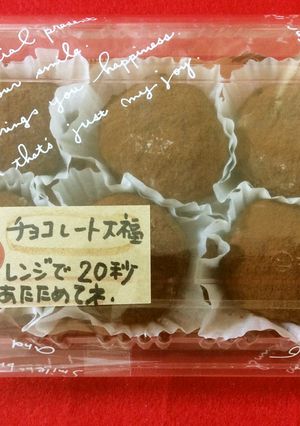 cial present
our smile.
rings you happiness
thats just my joy.
チョコレート大福
レンジで20秒
あたためてネ.
and
smile b